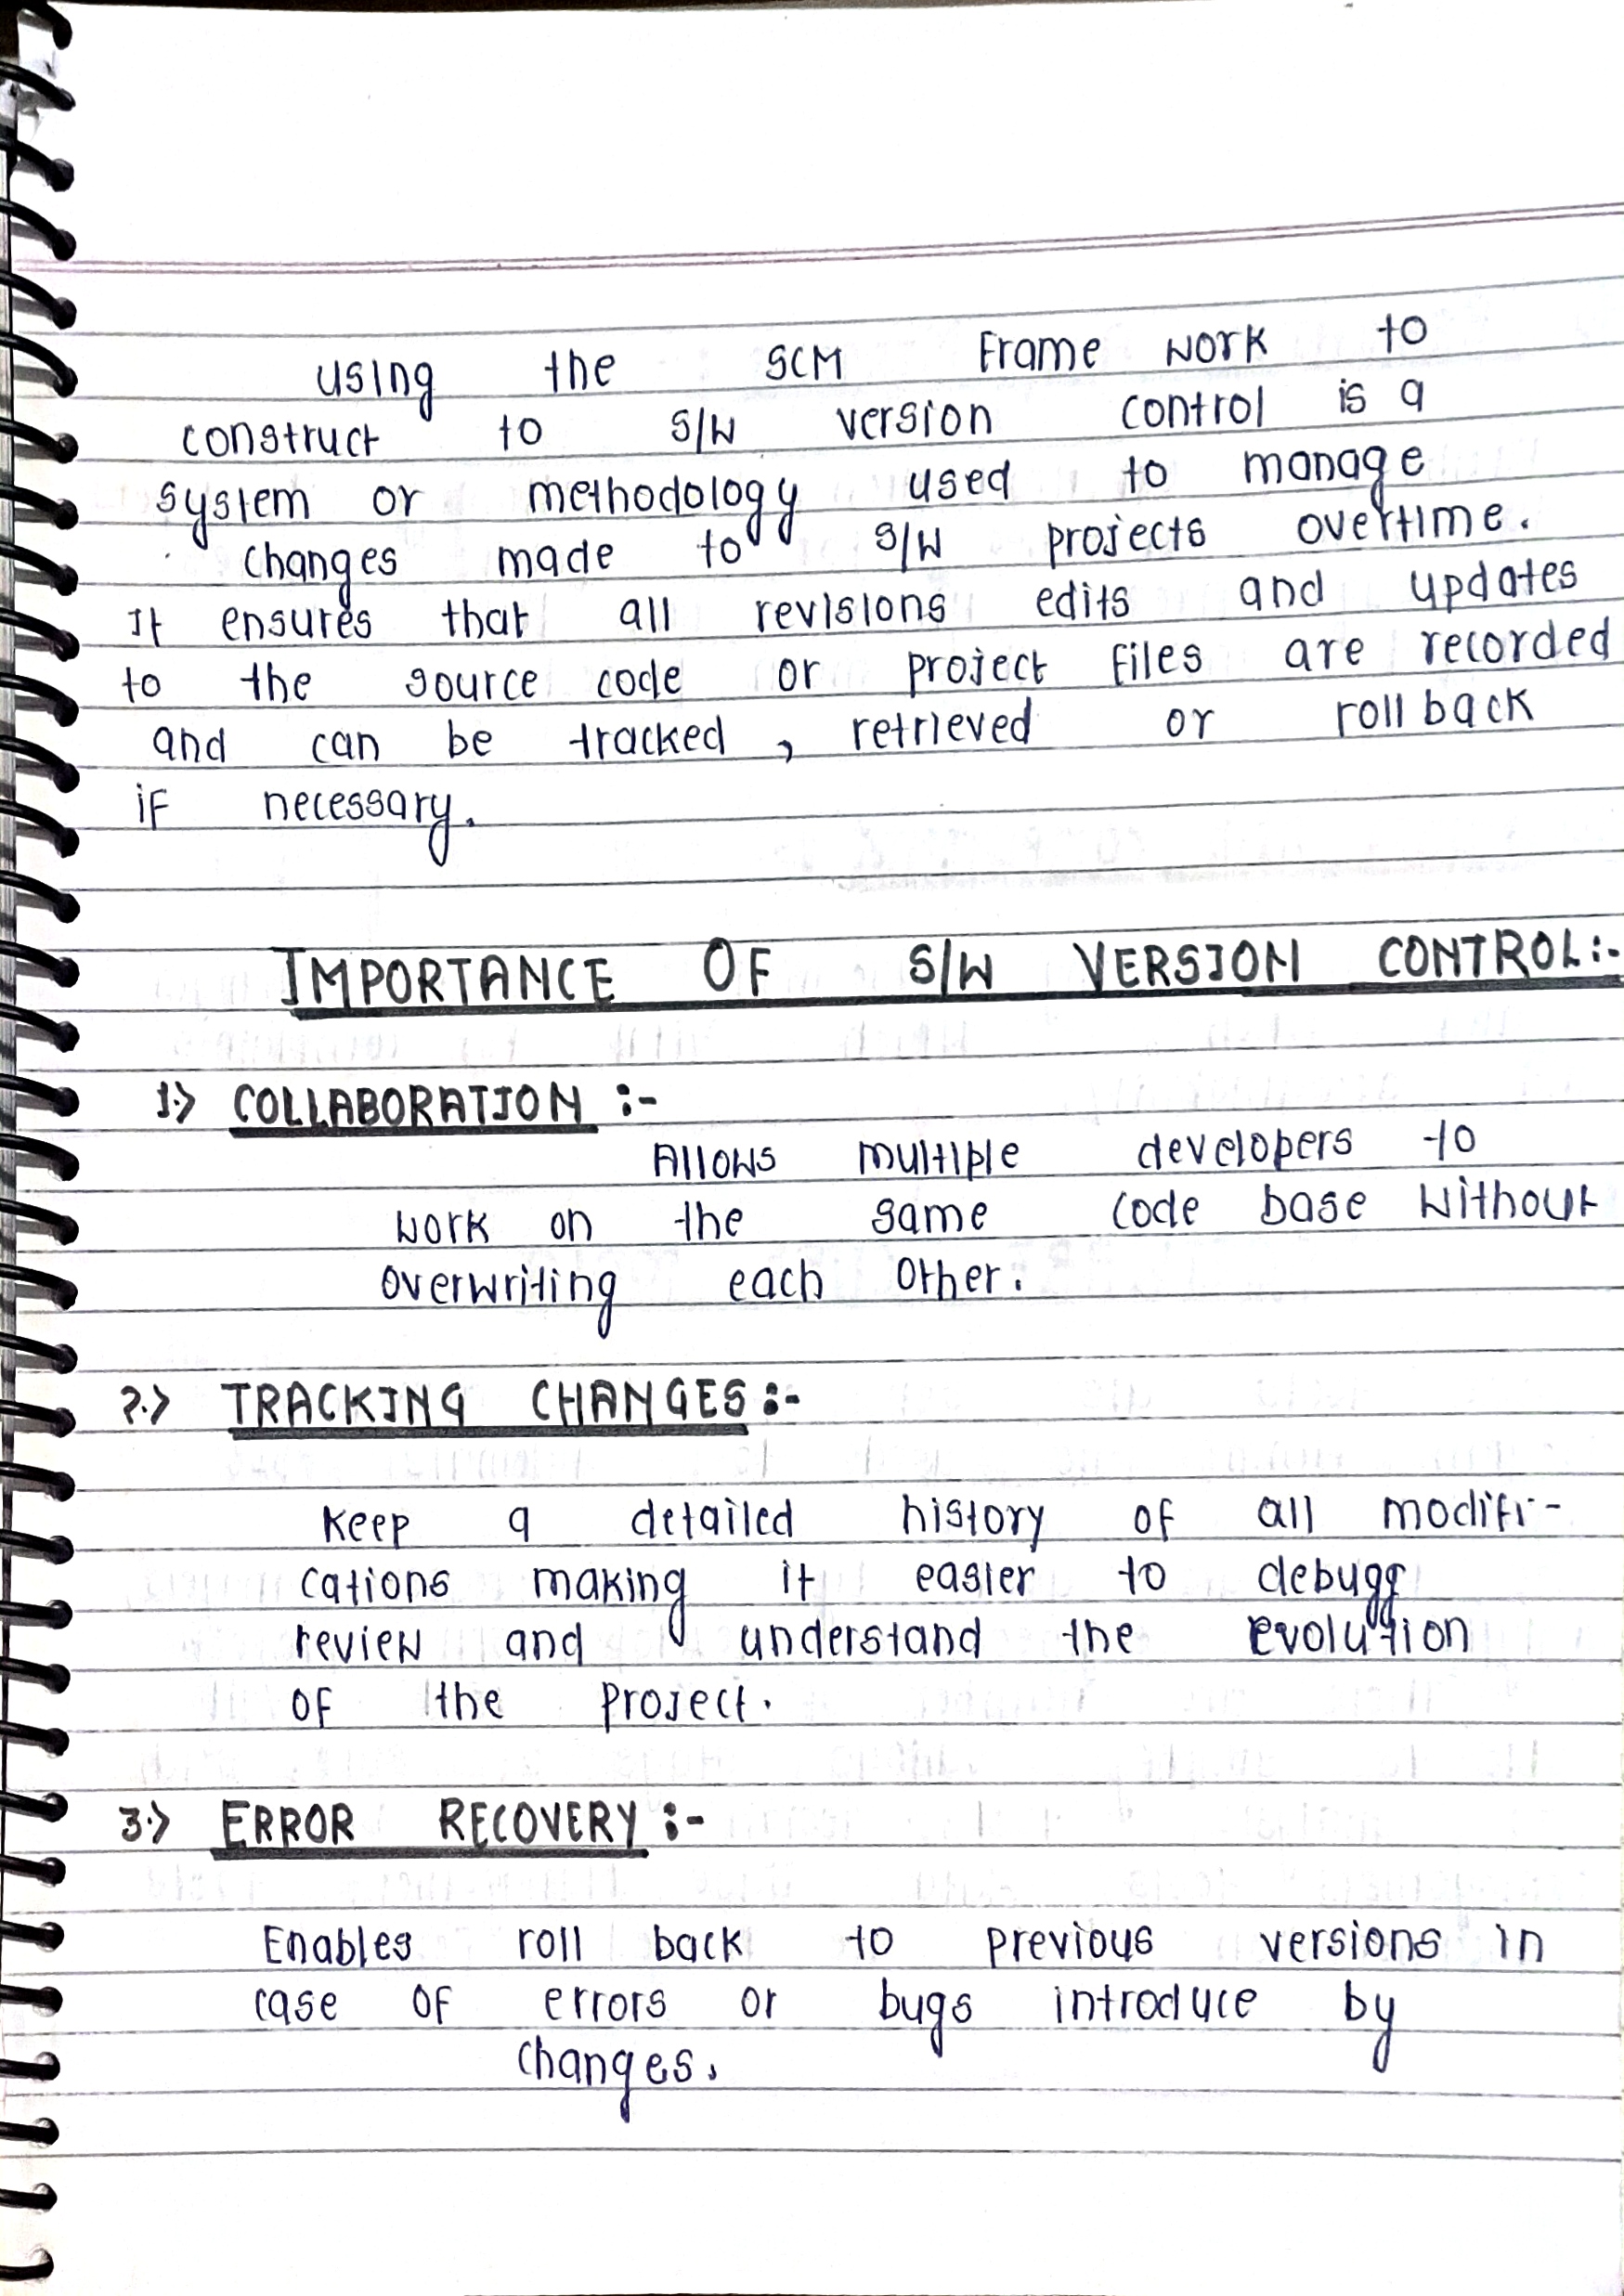 using the SCM Frame work to
construct to S/W version control is a
system or methodology used to manage
changes made to S/W projects overtime.
It ensures that all revisions edits and updates
to the source code or project files are recorded
and can be tracked, retrieved or roll back
if necessary.
IMPORTANCE OF S/W VERSION CONTROL:-
1.> COLLABORATION :-
Allows multiple developers to
work on the same code base without
overwriting each other.
2.> TRACKING CHANGES:-
Keep a detailed history of all modifi-
cations making it easier to debugg
review and understand the evolution
of the project.
3.> ERROR RECOVERY :-
Enables roll back to previous versions in
case of errors or bugs introduce by
changes.